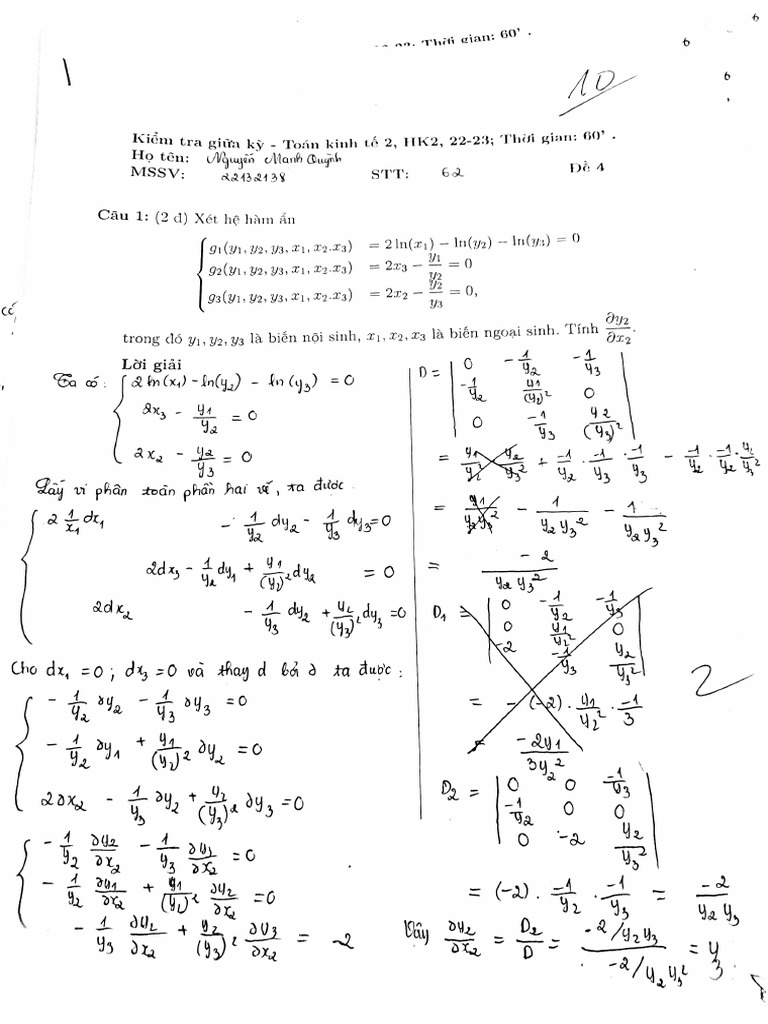 Thời gian: 60' .
6
6
6
10
Kiểm tra giữa kỳ - Toán kinh tế 2, HK2, 22-23; Thời gian: 60' .
Họ tên: Nguyễn Mạnh Quỳnh
MSSV: 22132138 STT: 62 Đề 4
Câu 1: (2 đ) Xét hệ hàm ẩn
g₁(y₁, y₂, y₃, x₁, x₂.x₃) = 2 ln(x₁) − ln(y₂) − ln(y₃) = 0
g₂(y₁, y₂, y₃, x₁, x₂.x₃) = 2x₃ − y₁/y₂ = 0
g₃(y₁, y₂, y₃, x₁, x₂.x₃) = 2x₂ − y₂/y₃ = 0,
trong đó y₁, y₂, y₃ là biến nội sinh, x₁, x₂, x₃ là biến ngoại sinh. Tính ∂y₂/∂x₂.
Lời giải
Ta có: { 2 ln(x₁) - ln(y₂) - ln(y₃) = 0
2x₃ - y₁/y₂ = 0
2x₂ - y₂/y₃ = 0
Lấy vi phân toàn phần hai vế, ta được
{ 2 1/x₁ dx₁ - 1/y₂ dy₂ - 1/y₃ dy₃ = 0
2dx₃ - 1/y₂ dy₁ + y₁/(y₂)² dy₂ = 0
2dx₂ - 1/y₃ dy₂ + y₂/(y₃)² dy₃ = 0
Cho dx₁ = 0; dx₃ = 0 và thay d bởi ∂ ta được:
{ - 1/y₂ ∂y₂ - 1/y₃ ∂y₃ = 0
- 1/y₂ ∂y₁ + y₁/(y₂)² ∂y₂ = 0
2∂x₂ - 1/y₃ ∂y₂ + y₂/(y₃)² ∂y₃ = 0
{ - 1/y₂ ∂y₂/∂x₂ - 1/y₃ ∂y₃/∂x₂ = 0
- 1/y₂ ∂y₁/∂x₂ + y₁/(y₂)² ∂y₂/∂x₂ = 0
- 1/y₃ ∂y₂/∂x₂ + y₂/(y₃)² ∂y₃/∂x₂ = -2
D = | 0 -1/y₂ -1/y₃ |
| -1/y₂ y₁/(y₂)² 0 |
| 0 -1/y₃ y₂/(y₃)² |
= y₁/y₂² y₂/y₃² + -1/y₂ · -1/y₃ · -1/y₃ - -1/y₂ · -1/y₂ · y₂/y₃²
= y₁/y₂y₃² - 1/y₂y₃² - 1/y₂y₃²
= -2/y₂y₃²
D₁ = | 0 -1/y₂ -1/y₃ |
| 0 y₁/y₂² 0 |
| -2 -1/y₃ y₂/y₃² |
= - (-2) · y₁/y₂² · -1/3
= -2y₁/3y₂²
2
D₂ = | 0 0 -1/y₃ |
| -1/y₂ 0 0 |
| 0 -2 y₂/y₃² |
= (-2) · -1/y₂ · -1/y₃ = -2/y₂y₃
Vậy ∂y₂/∂x₂ = D₂/D = (-2/y₂y₃)/(-2/y₂y₃²) = y₃